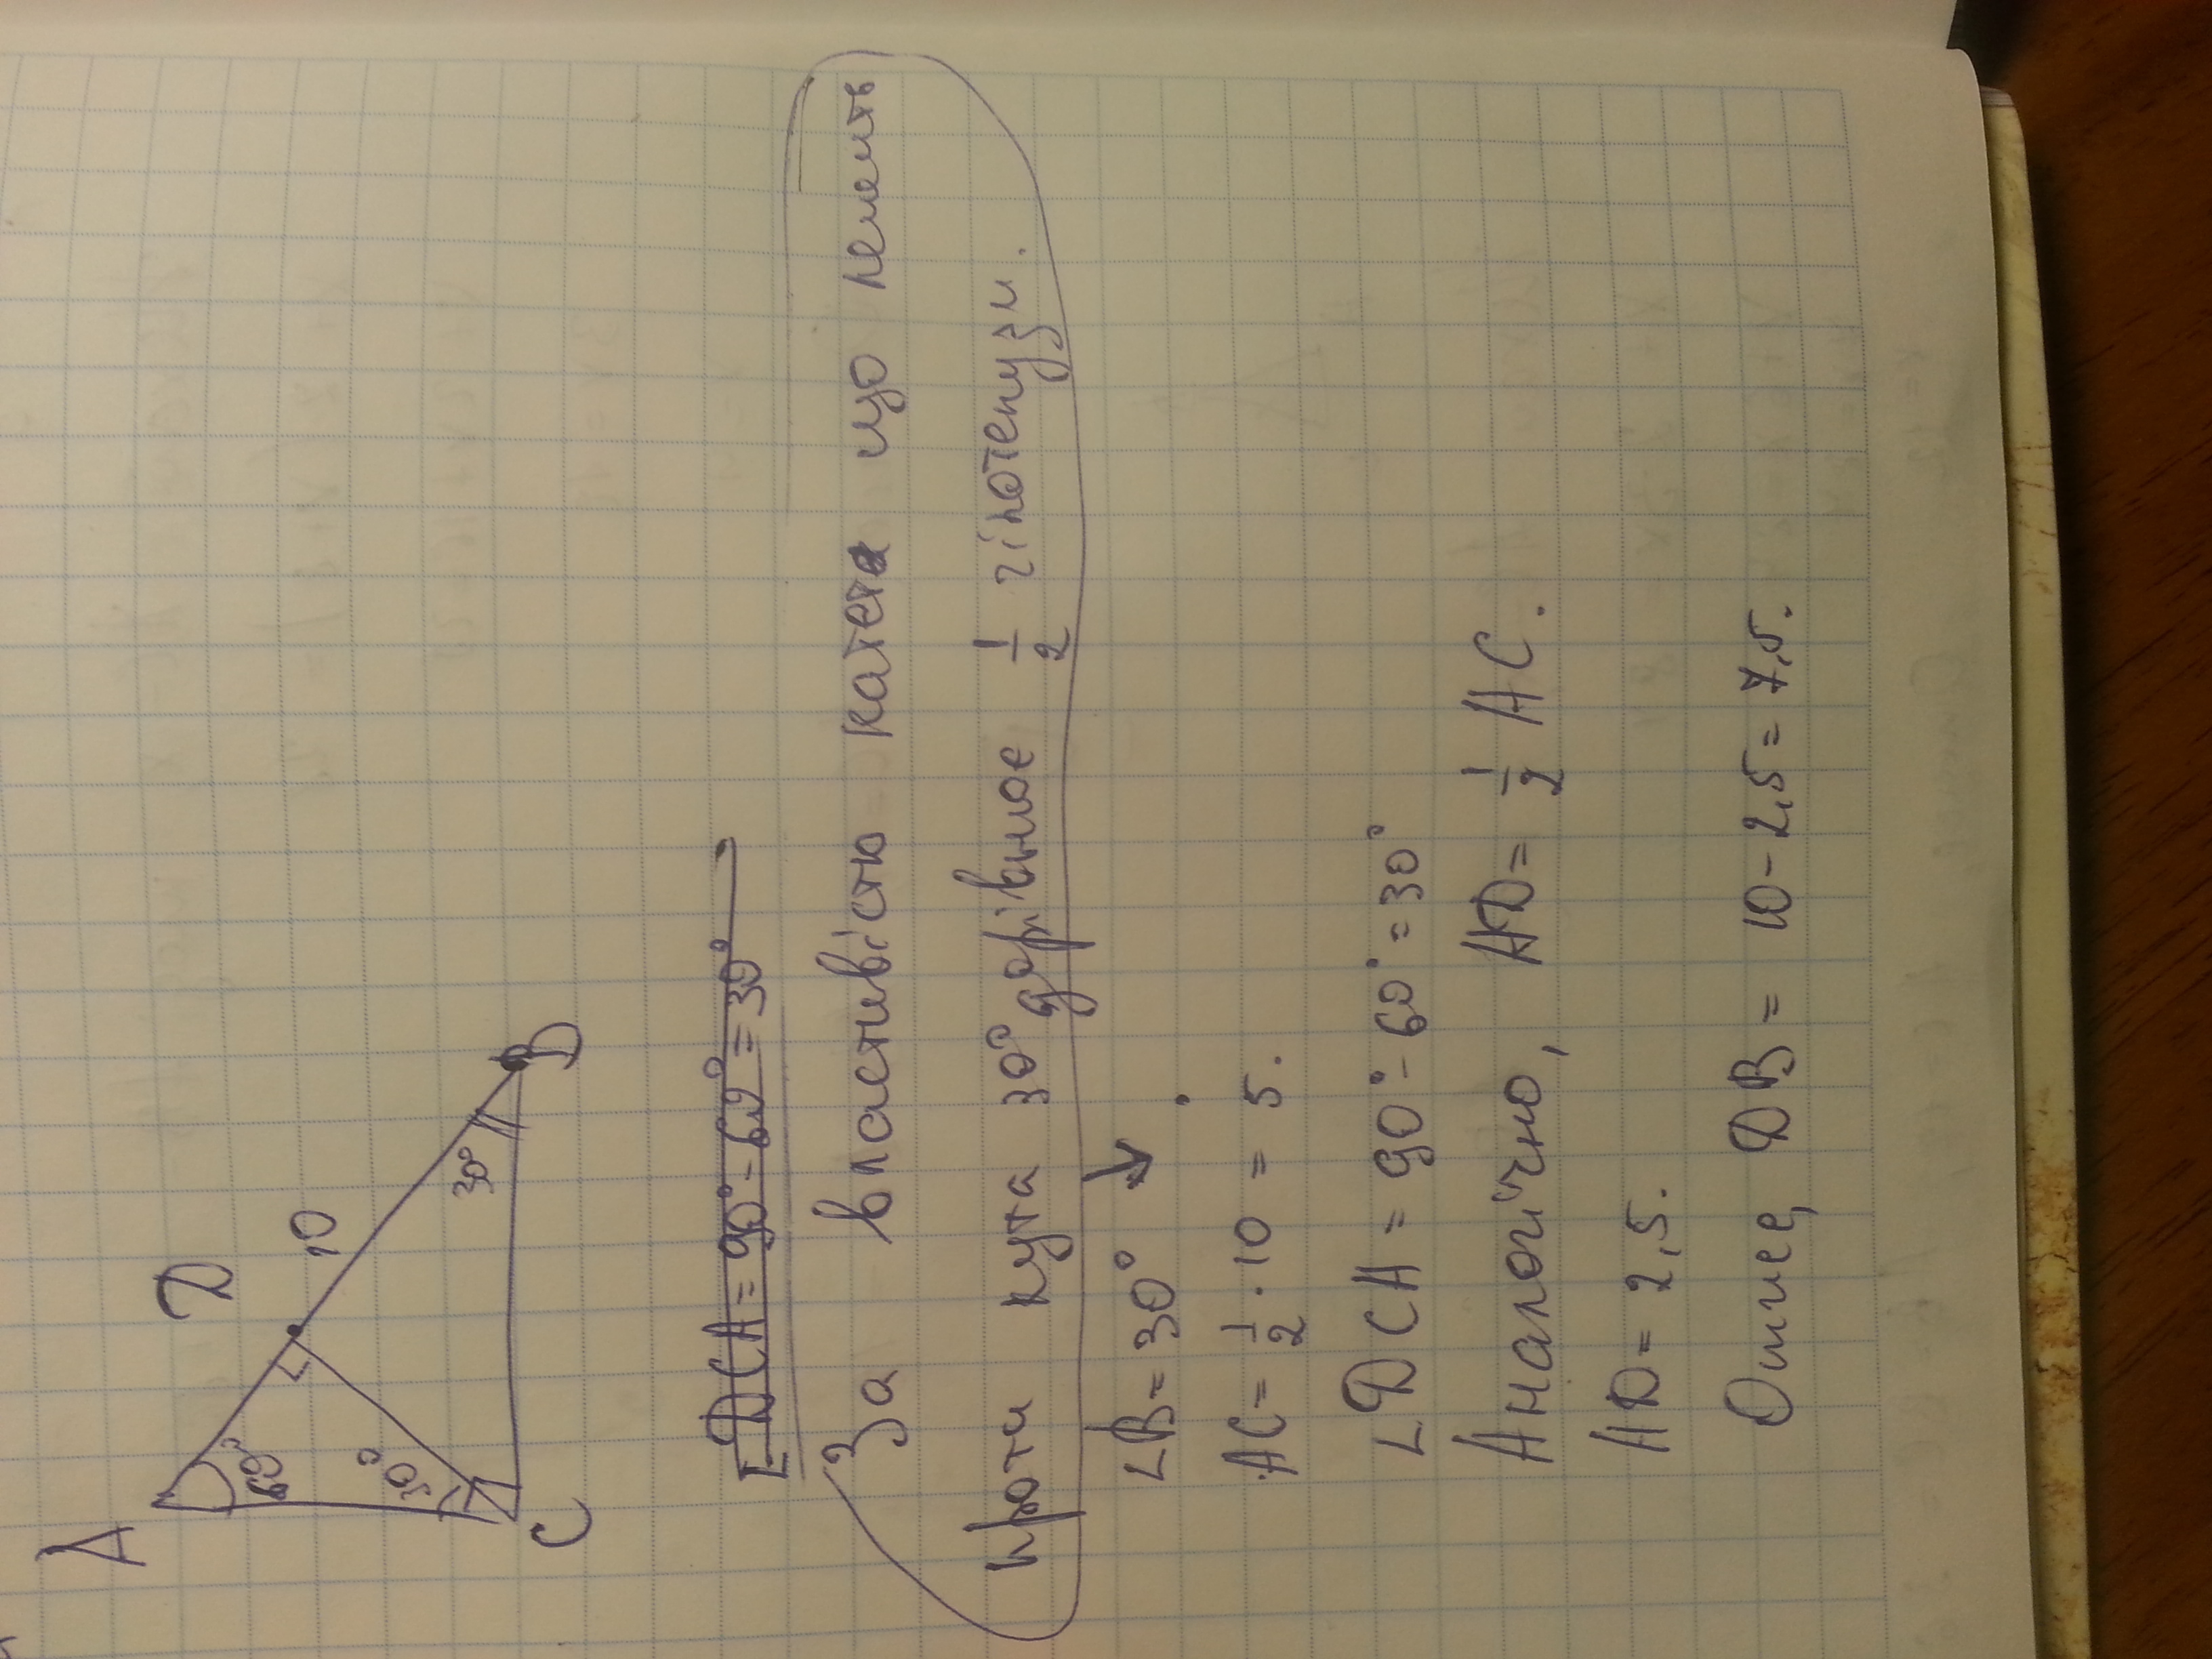 A
D
10
60°
30°
30°
C
B
∠DCA = 90° - 60° = 30°
За властивістю катета що лежить
проти кута 30° дорівнює 1/2 гіпотенузи.
∠B = 30°
AC = 1/2 · 10 = 5.
∠DCA = 90° - 60° = 30°
Аналогічно, AD = 1/2 AC.
AD = 2,5.
Отже, DB = 10 - 2,5 = 7,5.